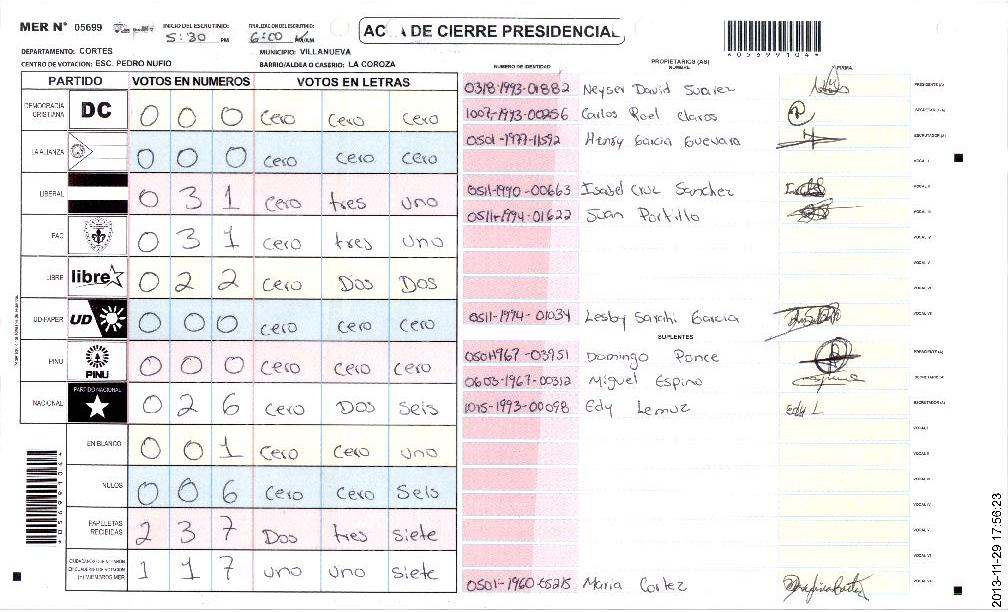 MER N° 05699
INICIO DEL ESCRUTINIO: 5:30 PM
FINALIZACION DEL ESCRUTINIO: 6:00 /AM
DE CIERRE PRESIDENCIAL
DEPARTAMENTO: CORTES
MUNICIPIO: VILLANUEVA
CENTRO DE VOTACION: ESC. PEDRO NUFIO
BARRIO/ALDEA O CASERIO: LA COROZA
PARTIDO VOTOS EN NUMEROS VOTOS EN LETRAS
DEMOCRACIA CRISTIANA DC 0 0 0 cero cero cero
LA ALIANZA 0 0 0 cero cero cero
LIBERAL 0 3 1 cero tres uno
PAC 0 3 1 cero tres uno
LIBRE libre 0 2 2 cero Dos Dos
UD-FAPER UD 0 0 0 cero cero cero
PINU PINU 0 0 0 cero cero cero
NACIONAL PARTIDO NACIONAL 0 2 6 cero Dos seis
EN BLANCO 0 0 1 cero cero uno
NULOS 0 0 6 cero cero seis
PAPELETAS RECIBIDAS 2 3 7 Dos tres siete
CIUDADANOS QUE VOTARON EN CUADERNO DE VOTACION (+) MIEMBROS MER 1 1 7 uno uno siete
NUMERO DE IDENTIDAD PROPIETARIOS (AS) NOMBRE FIRMA
0318-1993-01882 Neyser David Suarez PRESIDENTE (A)
1007-1993-00256 Carlos Roel Claros SECRETARIO (A)
0501-1977-11592 Henry Garcia Guevara ESCRUTADOR (A)
VOCAL I
0511-1990-00663 Isabel Cruz Sanchez VOCAL II
0511-1994-01622 Juan Portillo VOCAL III
VOCAL IV
VOCAL V
VOCAL VI
0511-1994-01034 Lesby Sarahi Garcia VOCAL VII
SUPLENTES
0501-1967-03951 Domingo Ponce PRESIDENTE (A)
0603-1967-00312 Miguel Espino SECRETARIO (A)
1015-1993-00098 Edy Lemuz Edy L. ESCRUTADOR (A)
VOCAL I
VOCAL II
VOCAL III
VOCAL IV
VOCAL V
VOCAL VI
0501-1960 Maria Cortez VOCAL VII
0 5 6 9 9 1 0 4 4
2013-11-29 17:56:23